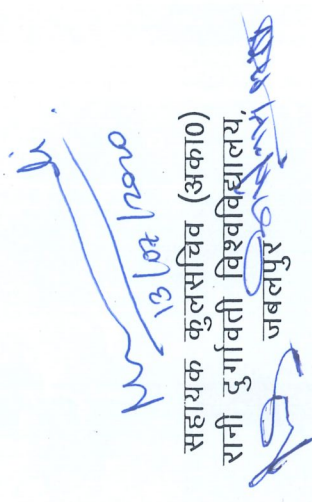 13/02/2020
सहायक कुलसचिव (अका0)
रानी दुर्गावती विश्वविद्यालय,
जबलपुर